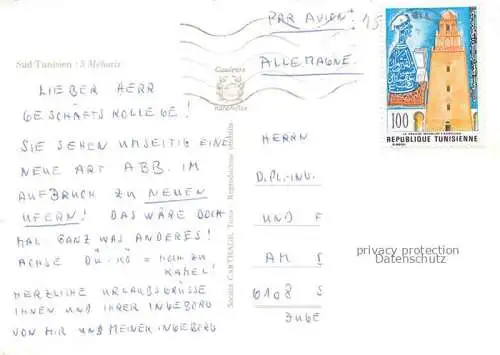 PAR AVION
ALLEMAGNE.
Sud Tunisien : 3 Meharis
LIEBER HERR
GESCHÄFTSKOLLEGE!
SIE SEHEN UMSEITIG EINE
NEUE ART ABB. IM
AUFBRUCH ZU NEUEN
UFERN! DAS WÄRE DOCH
MAL GANZ WAS ANDERES!
ACHSE DÜ-KÖ = HOCH ZU
KAMEL!
HERZLICHE URLAUBSGRÜSSE
IHNEN UND IHRER INGEBORG
VON MIR UND MEINER INGEBORG
Couleurs
naturelles
Société CARTHAGE, Tunis Reproduction interdite
100
REPUBLIQUE TUNISIENNE
HERRN
DIPL.-ING.
UND F
AM S
6108 S
privacy protection
Datenschutz